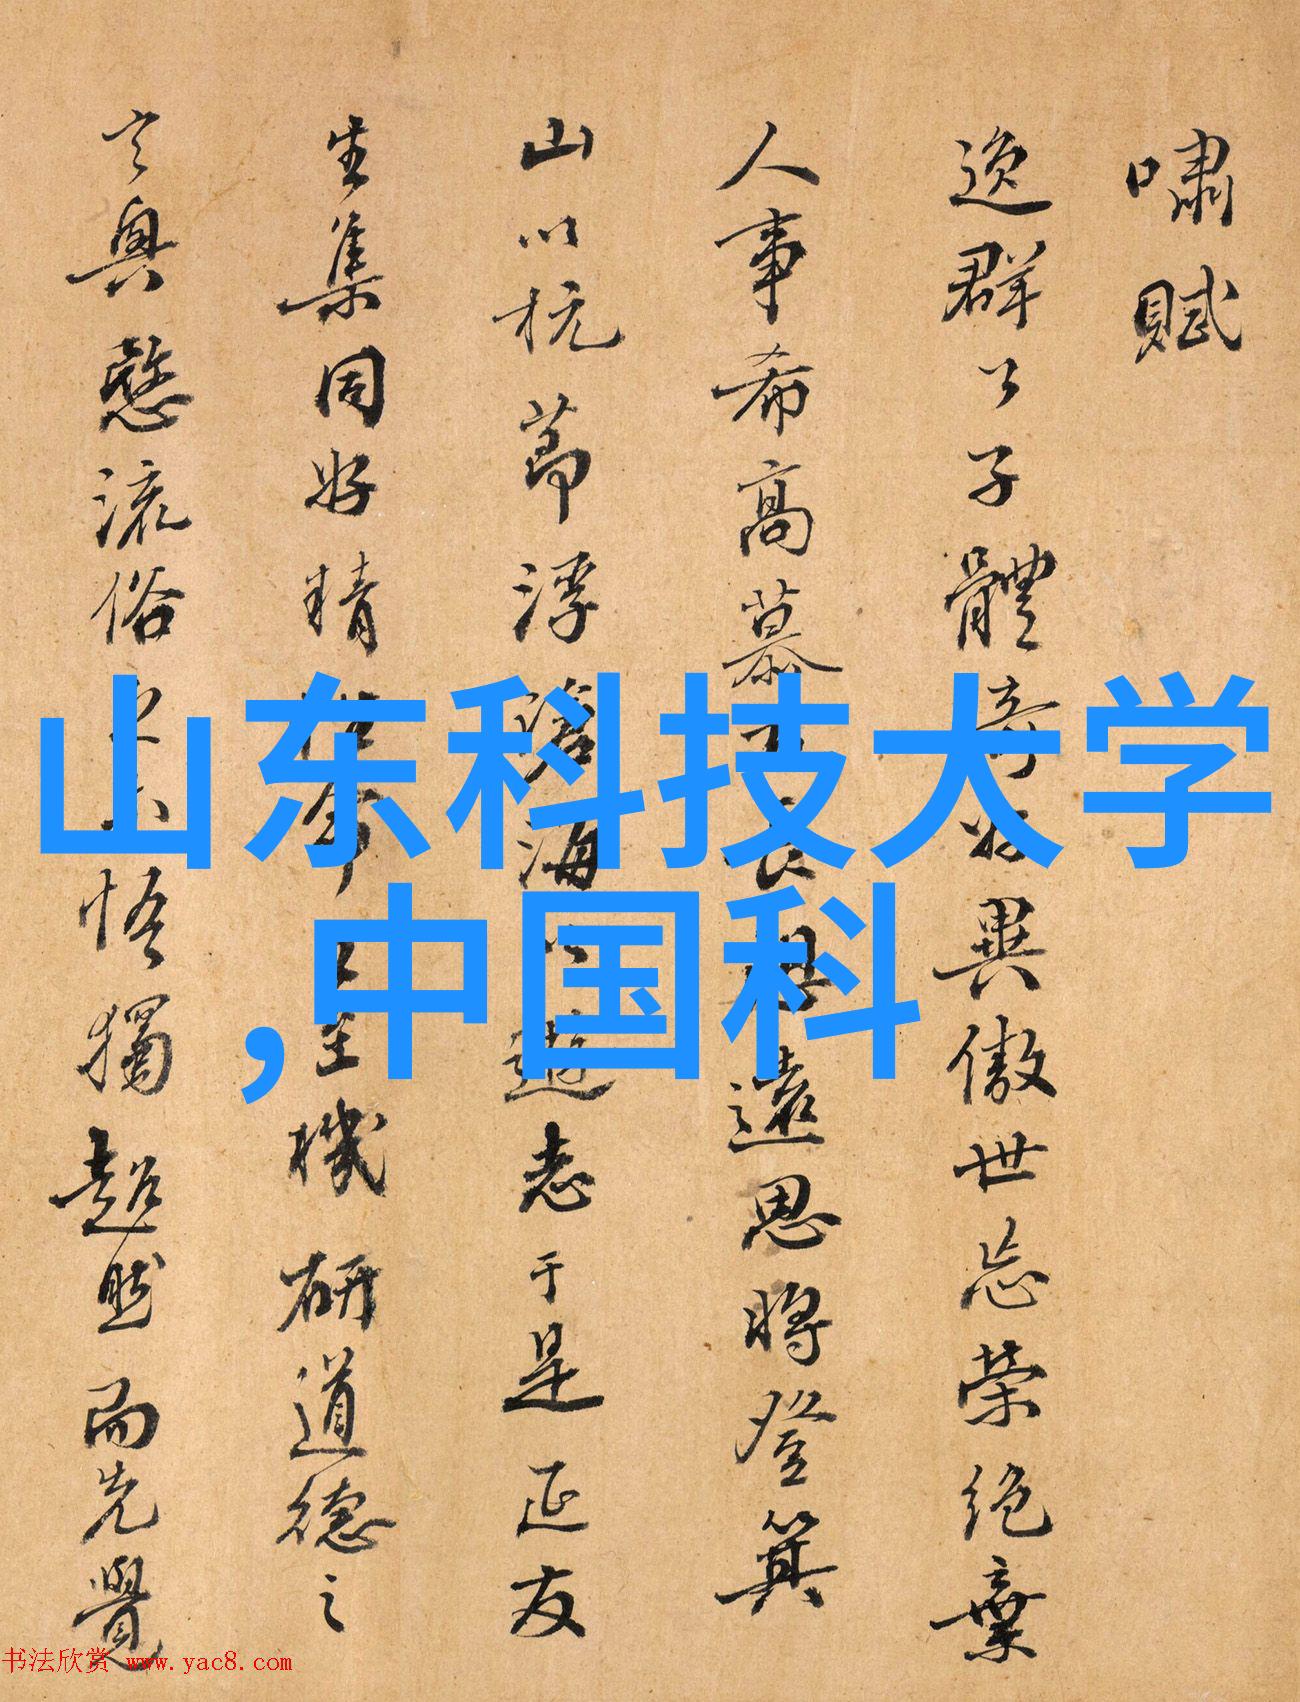 啸赋
逸群公子體奇好異傲世忘榮絕棄
人事希高慕古長想遠思將登箕
山以抗節浮滄海以遊志于是延友
生集同好精性命之至機研道德之
玄奧愍流俗之未悟獨超然而先覺
山东科技大学
,中国科
书法欣赏 www.yac8.com